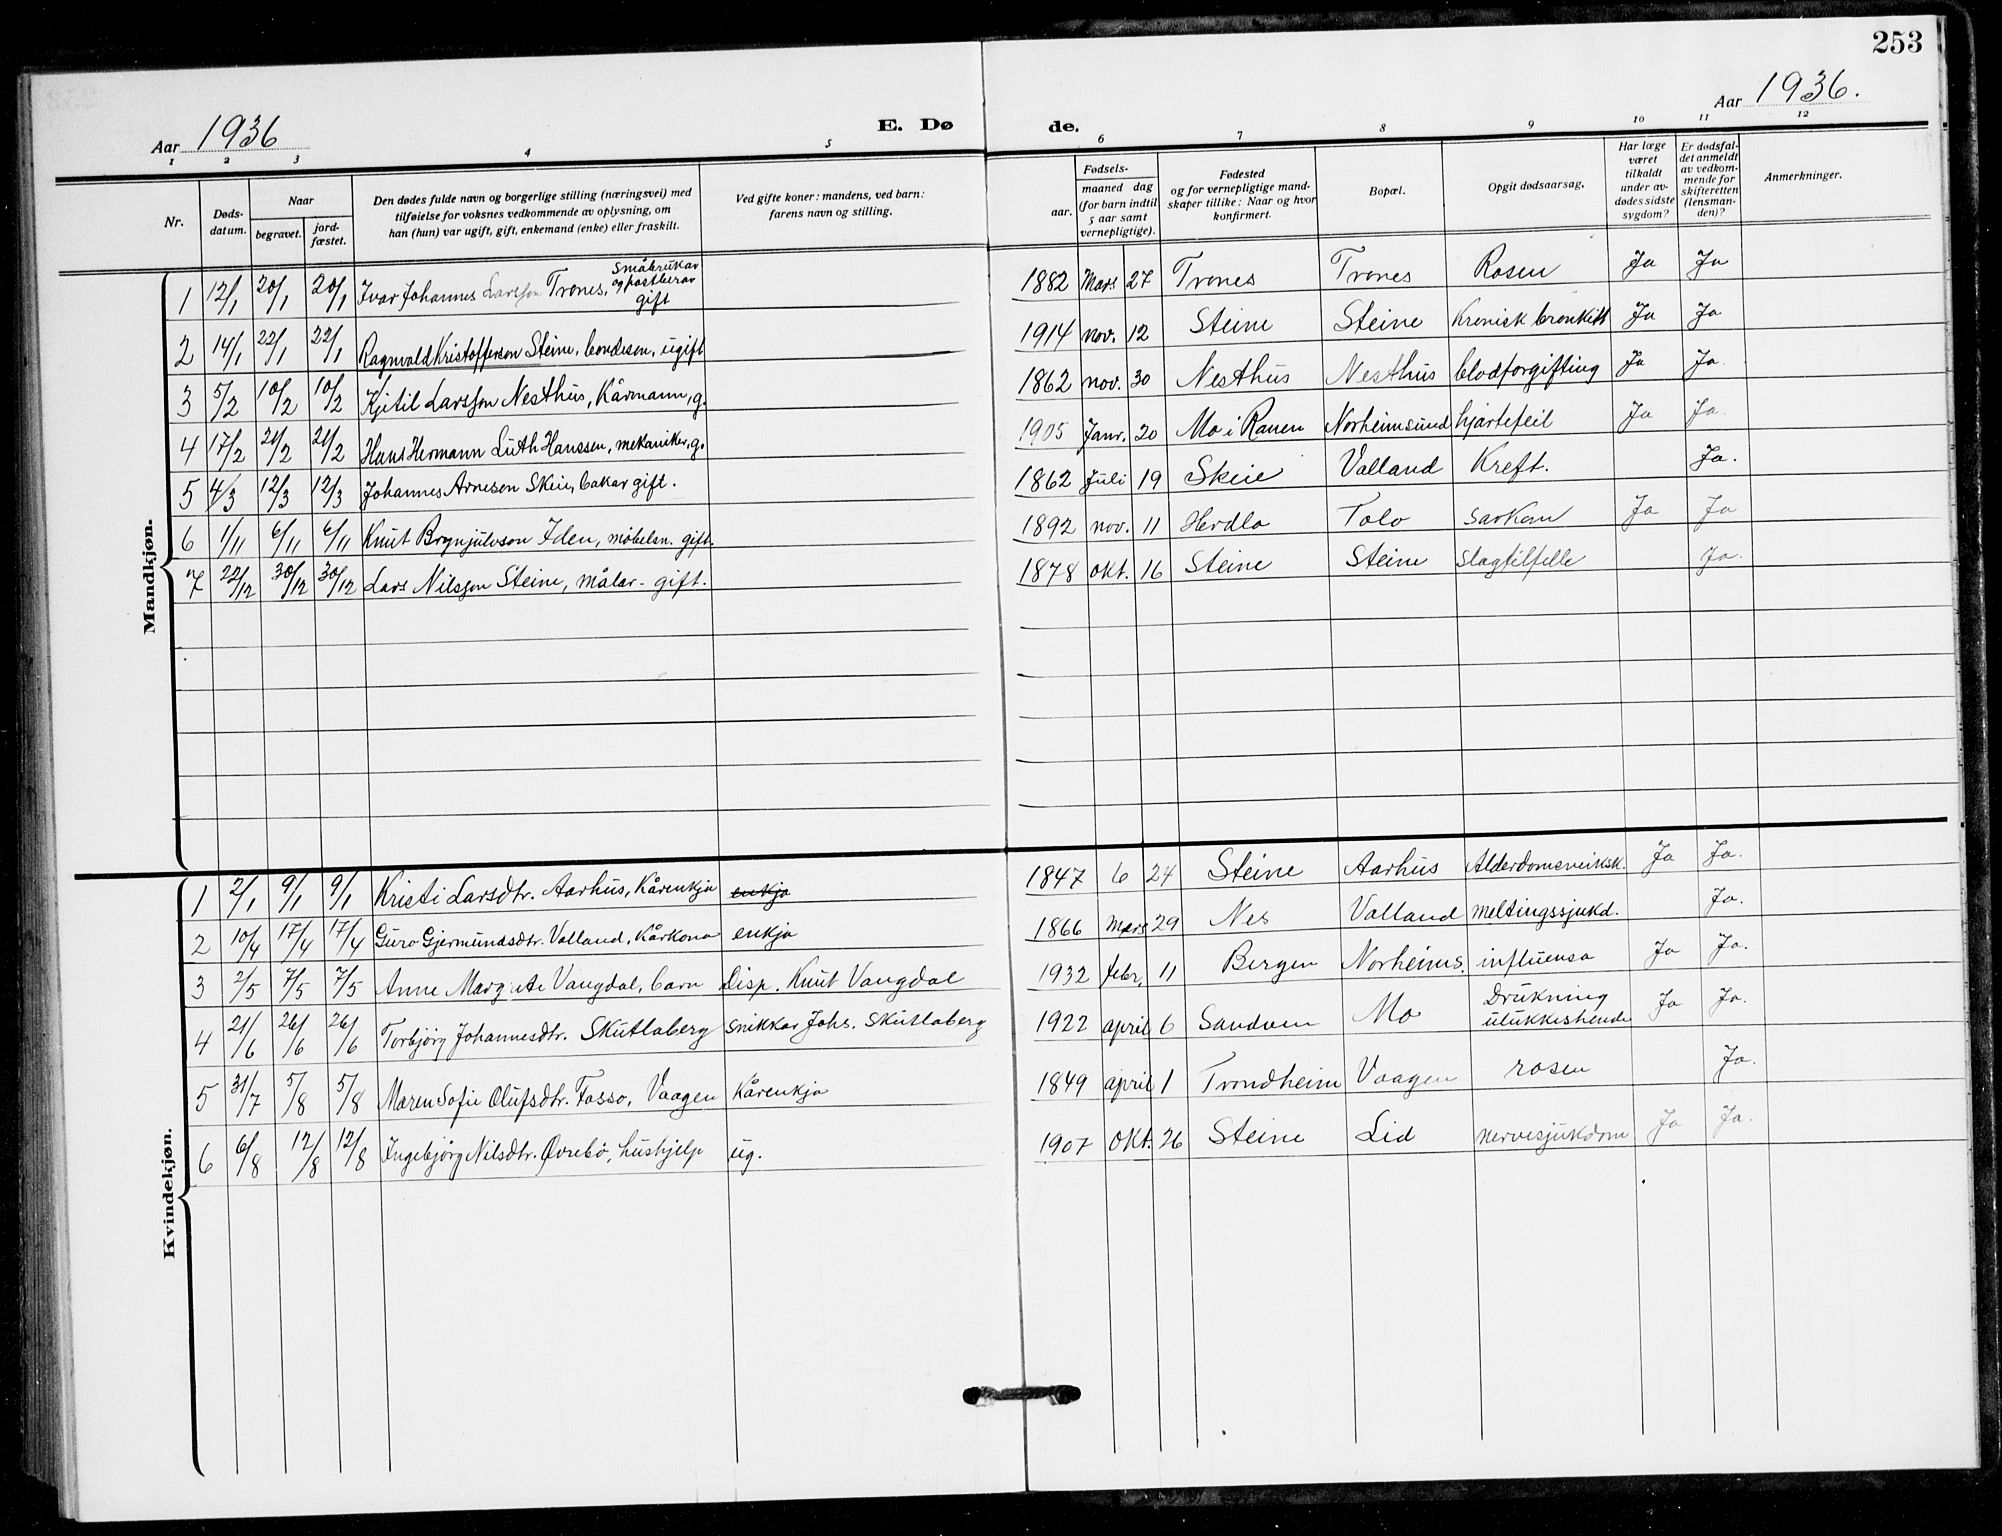 253
Aar 1936
E. Dø
de.
Aar 1936.
1 2 3 4 5 6 7 8 9 10 11 12
Nr.
Døds-
datum.
Naar
begravet.
jord-
fæstet.
Den dødes fulde navn og borgerlige stilling (næringsvei) med
tilføielse for voksnes vedkommende av oplysning, om
han (hun) var ugift, gift, enkemand (enke) eller fraskilt.
Ved gifte koner: mandens, ved barn:
farens navn og stilling.
Fødsels-
aar.
maaned dag
(for barn indtil
5 aar samt
vernepligtige).
Fødested
og for vernepligtige mand-
skaper tillike: Naar og hvor
konfirmert.
Bopæl.
Opgit dødsaarsag.
Har læge
været
tilkaldt
under av-
dødes sidste
sygdom?
Er dødsfal-
det anmeldt
av vedkom-
mende for
skifteretten
(lensman-
den)?
Anmerkninger.
Mandkjøn.
småbrukar
og postberar
1 12/1 20/1 20/1 Ivar Johannes Larsson Trones, gift 1882 Mars 27 Trones Trones Rosen Ja Ja
2 14/1 22/1 22/1 Ragnvald Kristofferson Steine, bondeson, ugift 1914 nov. 12 Steine Steine Kronisk bronkitt Ja Ja
3 5/2 10/2 10/2 Kjetil Larsson Nesthus, Kårmann, g. 1862 nov. 30 Nesthus Nesthus blodforgifting Ja Ja.
4 17/2 21/2 21/2 Hans Hermann Luth Hanssen, mekaniker, g. 1905 Janr. 20 Mo i Ranen Norheimsund hjartefeil Ja Ja.
5 4/3 12/3 12/3 Johannes Arneson Skeie, bakar gift. 1862 Juli 19 Skeie Valland Kreft. Ja.
6 1/11 6/11 6/11 Knut Brynjulvson Iden, møbelsn. gift. 1892 nov. 11 Herdla Tolo sarkom Ja Ja
7 22/12 30/12 30/12 Lars Nilsson Steine, målar - gift. 1878 okt. 16 Steine Steine Slagtilfelle Ja.
Kvindekjøn.
1 2/1 9/1 9/1 Kristi Larsdtr. Aarhus, Kårenkja enkja 1847 6 24 Steine Aarhus Alderdomsveiksk. Ja Ja.
2 10/4 17/4 17/4 Guro Gjermundsdtr. Valland, Kårkona enkja 1866 Mars 29 Nes Valland meltingssjukd. Ja.
3 2/5 7/5 7/5 Anne Margrete Vangdal, barn Disp. Knut Vangdal 1932 febr. 11 Bergen Norheims. influensa Ja Ja.
4 21/6 26/6 26/6 Torbjørg Johannesdtr. Skutlaberg snikkar Johs. Skutlaberg 1922 april 6 Sandven Mo Drukning ulukkeshende Ja Ja.
5 31/7 5/8 5/8 Maren Sofie Olufsdtr. Fosso, Vaagen Kårenkja 1849 april 1 Trondheim Vaagen rosen Ja.
6 6/8 12/8 12/8 Ingebjørg Nilsdtr. Øvrebø, hushjelp ug. 1907 Okt. 26 Steine Lid nervesjukdom Ja Ja.